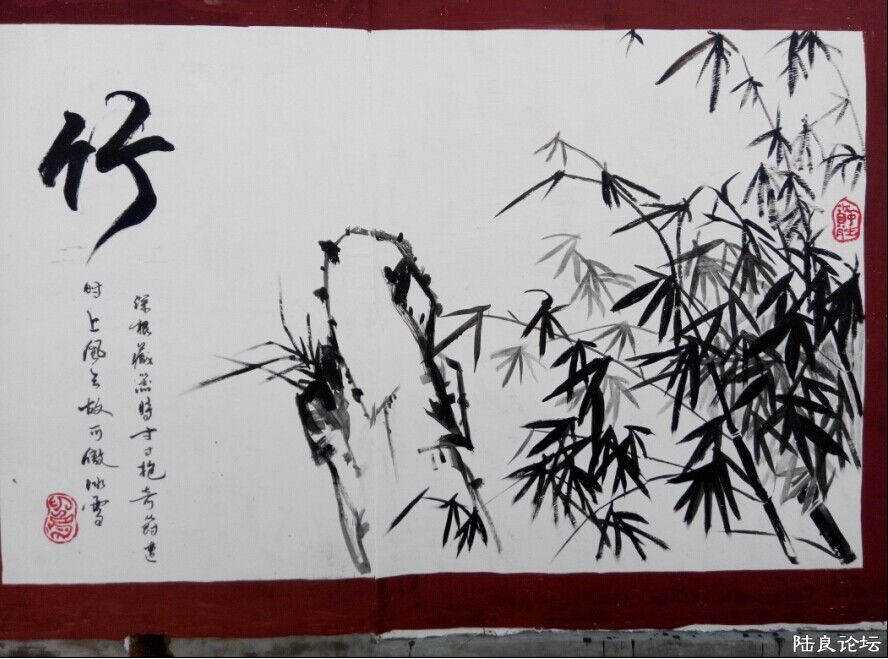 竹
深根藏器時寸寸抱奇節達
时上風云故可傲冰雪
陆良论坛